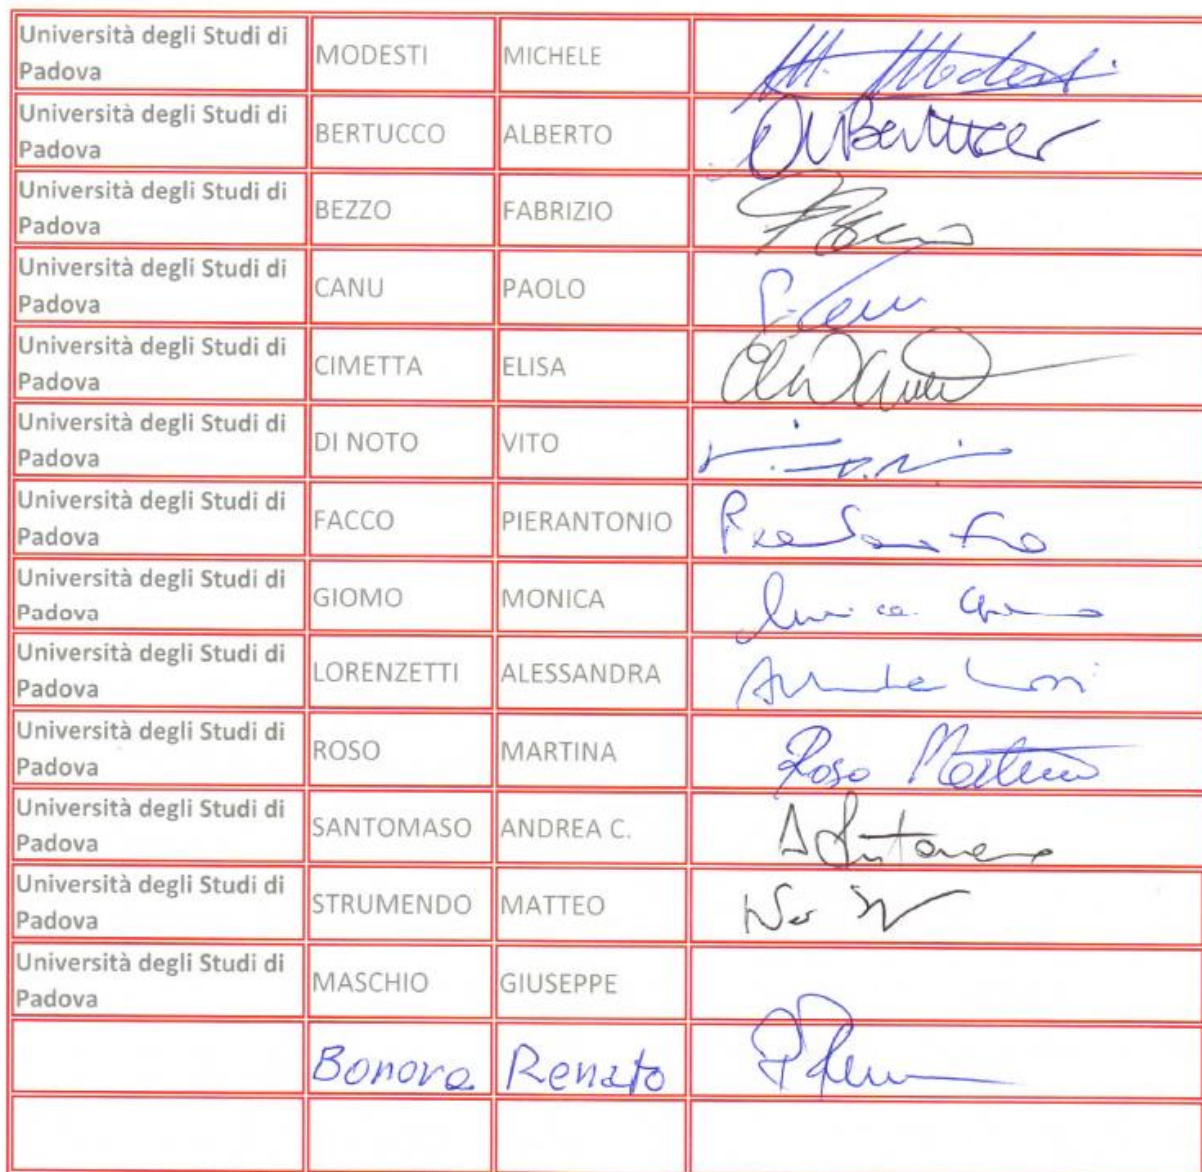 Università degli Studi di
Padova
MODESTI
MICHELE
M. Modesti
Università degli Studi di
Padova
BERTUCCO
ALBERTO
Università degli Studi di
Padova
BEZZO
FABRIZIO
Università degli Studi di
Padova
CANU
PAOLO
Università degli Studi di
Padova
CIMETTA
ELISA
Università degli Studi di
Padova
DI NOTO
VITO
Università degli Studi di
Padova
FACCO
PIERANTONIO
Università degli Studi di
Padova
GIOMO
MONICA
Università degli Studi di
Padova
LORENZETTI
ALESSANDRA
Università degli Studi di
Padova
ROSO
MARTINA
Roso Martina
Università degli Studi di
Padova
SANTOMASO
ANDREA C.
Università degli Studi di
Padova
STRUMENDO
MATTEO
Università degli Studi di
Padova
MASCHIO
GIUSEPPE
Bonora
Renato